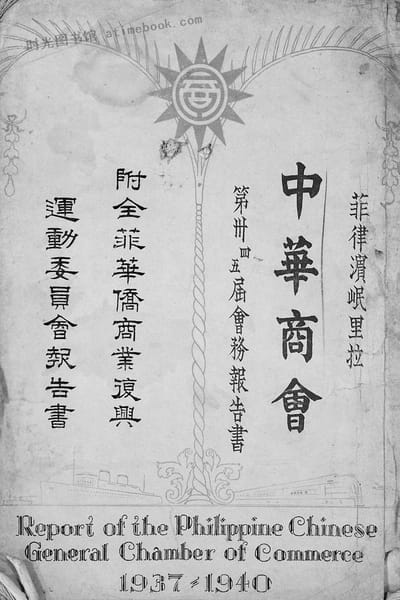 时光图书馆 atimebook.com
菲律濱岷里拉
中華商會
第卅四五屆會務報告書
附全菲華僑商業復興
運動委員會報告書
Report of the Philippine Chinese
General Chamber of Commerce
1937-1940